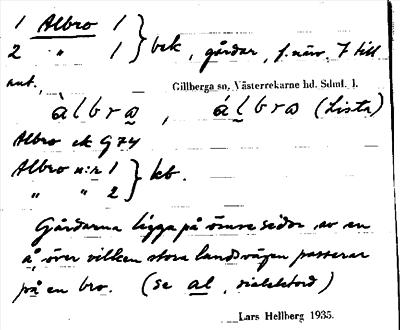 1 Albro 1 } bek, gårdar, f. näv. 7 till
2 " 1
ant.
Gillberga sn. Västerrekarne hd. Sdml. l.
àlbrꝏ, álbrꝏ (Lista)
Albro ek G 74
Albro n:r 1 } kb.
" " 2
Gårdarna ligga på ömse sidor av en
å, över vilken stora landsvägen passerar
på en bro. (se al,
Lars Hellberg 1935.